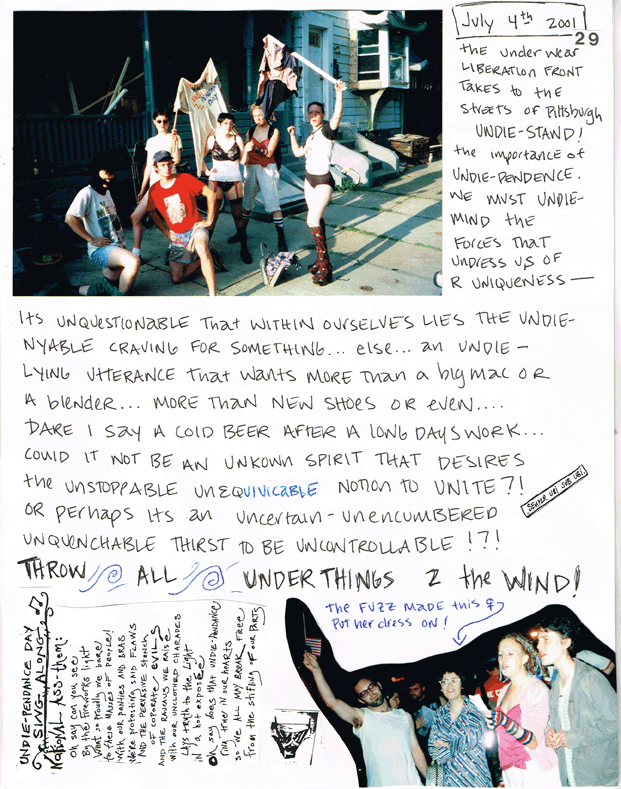 July 4th 2001
29
the underwear
LIBERATION FRONT
TAKES to the
streets of Pittsburgh
UNDIE-STAND!
the importance of
UNDIE-PENDENCE.
WE MUST UNDIE-
MIND the
FORCES THAT
UNDRESS US OF
R UNIQUENESS —
ITS UNQUESTIONABLE That WITHIN OURSELVES LIES THE UNDIE-
NYABLE CRAVING FOR SOMETHING... else... an UNDIE-
LYING UTTERANCE that WANTS MORE Than a big mac OR
A blender... MORE THAN NEW SHOES OR even....
DARE I SAY A COLD BEER AFTER A LONG DAYS WORK...
COULD IT NOT BE AN UNKOWN SPIRIT THAT DESIRES
the UNSTOPPABLE UNEQUIVICABLE NOTION TO UNITE?!
OR perhaps its an uncertain-unencumbered
UNQUENCHABLE THIRST TO BE UNCONTROLLABLE !?!
SEMPER UBI SUB UBI.
THROW ALL UNDERTHINGS 2 the WIND!
UNDIE-PENDANCE DAY
SING ALONG
National Ass-them:
Oh say can you see
By the Fireworks light
What so proudly we bare
to these Masses of people!
With our panties and BRAS
We're protesting SAID FLAWS
AND THE PERVASIVE stench
OF COPORATE EVILS
AND the RAUCUS WE RAISE
with our unclothed charades
LAYS truth to the light
IN a hot exposée
Oh say does that UNDIE-Pendance
Firm tread in our hearts
so we ALL may BREAK FREE
from the STIFLING OF our PARTS
the FUZZ made this ♀
put her dress on!